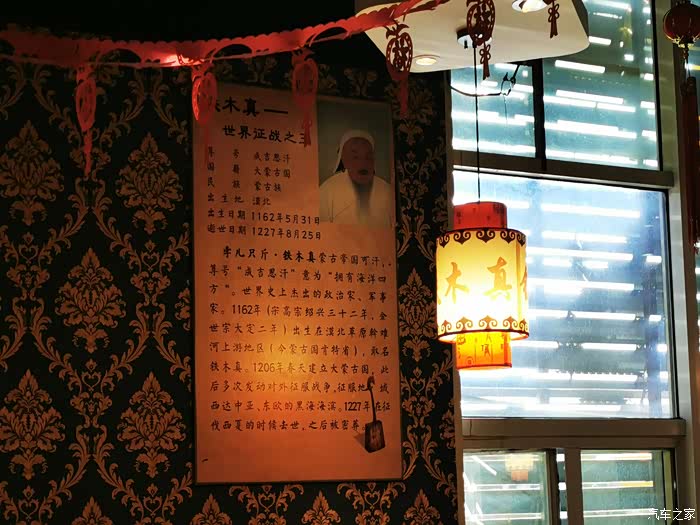 木真——
世界征战之王
尊 号 成吉思汗
国 籍 大蒙古国
民 族 蒙古族
出 生 地 漠北
出生日期 1162年5月31日
逝世日期 1227年8月25日
孛儿只斤·铁木真蒙古帝国可汗,
尊号“成吉思汗”意为“拥有海洋四
方”。世界史上杰出的政治家、军事
家。1162年(宋高宗绍兴三十二年,金
世宗大定二年)出生在漠北草原斡难
河上游地区(今蒙古国肯特省),取名
铁木真。1206年春天建立大蒙古国,此
后多次发动对外征服战争,征服地 域
西达中亚、东欧的黑海海滨。1227年在征
伐西夏的时候去世,之后被密葬
木真
汽车之家